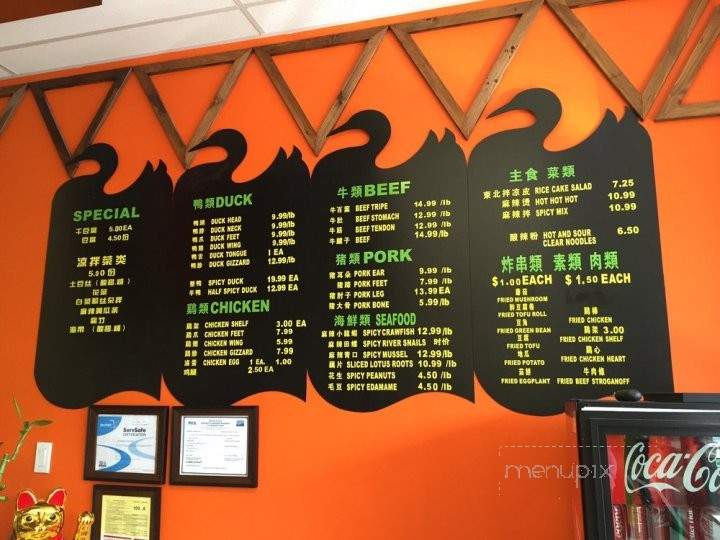 SPECIAL
千豆腐 5.00EA
豆腐 4.50份
凉拌菜类
5.00份
土豆丝 (酸甜.辣)
花菜
白菜粉丝凉拌
麻辣黄瓜菜
腐竹
海带 (酸甜.辣)
鸭類DUCK
鸭頭 DUCK HEAD 9.99/lb
鸭脖 DUCK NECK 9.99/lb
鸭爪 DUCK FEET 9.99/lb
鸭翅 DUCK WING 9.99/lb
鸭舌 DUCK TONGUE 1 EA
鸭胗 DUCK GIZZARD 12.99/lb
整鸭 SPICY DUCK 19.99 EA
半鸭 HALF SPICY DUCK 12.99 EA
鷄類CHICKEN
鷄架 CHICKEN SHELF 3.00 EA
鷄爪 CHICKEN FEET 7.99
鷄翅 CHICKEN WING 5.99
鷄胗 CHICKEN GIZZARD 7.99
滷蛋 CHICKEN EGG 1 EA. 1.00
鷄腿 2.50 EA
牛類BEEF
牛百葉 BEEF TRIPE 14.99 /lb
牛肚 BEEF STOMACH 12.99 /lb
牛筋 BEEF TENDON 12.99 /lb
牛腱子 BEEF 14.99/lb
猪類 PORK
猪耳朵 PORK EAR 9.99 /lb
猪蹄 PORK FEET 7.99 /lb
猪肘子 PORK LEG 13.99 EA
猪大骨 PORK BONE 5.99/lb
海鮮類 SEAFOOD
麻辣小龍蝦 SPICY CRAWFISH 12.99/lb
麻辣田螺 SPICY RIVER SNAILS 时价
麻辣青口 SPICY MUSSEL 12.99/lb
藕片 SLICED LOTUS ROOTS 10.99/lb
花生 SPICY PEANUTS 4.50 /lb
毛豆 SPICY EDAMAME 4.50 /lb
主食 菜類
東北拌凉皮 RICE CAKE SALAD 7.25
麻辣燙 HOT HOT HOT 10.99
麻辣拌 SPICY MIX 10.99
酸辣粉 HOT AND SOUR 6.50
CLEAR NOODLES
炸串類 素類 肉類
$1.00EACH $1.50EACH
蘑菇
FRIED MUSHROOM
FRIED TOFU ROLL
豆角
FRIED GREEN BEAN
豆腐
FRIED TOFU
地瓜
FRIED POTATO
茄餅
FRIED EGGPLANT
鷄棒
FRIED CHICKEN
鷄架 3.00
FRIED CHICKEN SHELF
鷄心
FRIED CHICKEN HEART
牛肉條
FRIED BEEF STROGANOFF
ServSafe
CERTIFICATION
menupix
Coca-Co